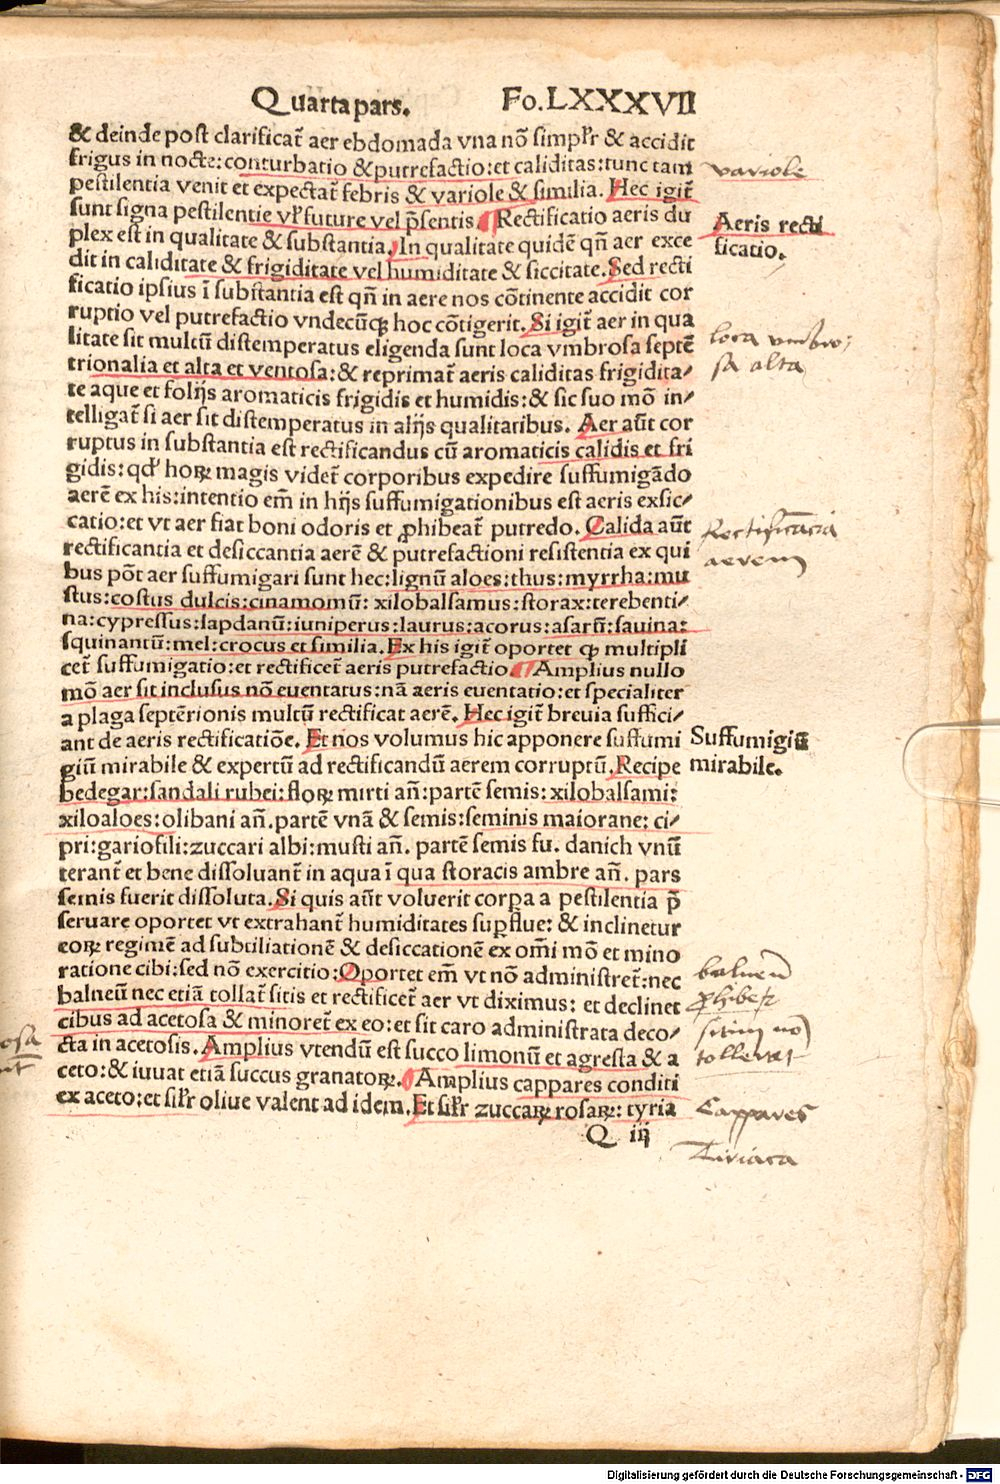 Quarta pars. Fo. LXXXVII
& deinde post clarificat̃ aer ebdomada vna nõ simpl’r & accidit
frigus in nocte: conturbatio & putrefactio: et caliditas: tunc tam
pestilentia venit et expectat̃ febris & variole & similia. Hec igit̃
sunt signa pestilentie vl’ future vel p̃sentis. Rectificatio aeris du
plex est in qualitate & substantia. In qualitate quidẽ qñ aer exce
dit in caliditate & frigiditate vel humiditate & siccitate. Sed recti
ficatio ipsius ĩ substantia est qñ in aere nos cõtinente accidit cor
ruptio vel putrefactio vndecũqꝫ hoc cõtigerit. Si igit̃ aer in qua
litate sit multũ distemperatus eligenda sunt loca vmbrosa septẽ
trionalia et alta et ventosa: & reprimat̃ aeris caliditas frigidita⸗
te aque et folijs aromaticis frigidis et humidis: & sic suo mõ in⸗
telligat̃ si aer sit distemperatus in alijs qualitatibus. Aer aũt cor
ruptus in substantia est rectificandus cũ aromaticis calidis et fri
gidis: qd’ hoꝝ magis videt̃ corporibus expedire suffumigãdo
aerẽ ex his: intentio em̃ in hijs suffumigationibus est aeris exsic⸗
catio: et vt aer fiat boni odoris et ꝓhibeat̃ putredo. Calida aũt
rectificantia et desiccantia aerẽ & putrefactioni resistentia ex qui
bus põt aer suffumigari sunt hec: lignũ aloes: thus: myrrha: mu
stus: costus dulcis: cinamomũ: xilobalsamus: storax: terebenti⸗
na: cypressus: lapdanũ: iuniperus: laurus: acorus: asarũ: sauina:
squinantũ: mel: crocus et similia. Ex his igit̃ oportet ꝙ multipli
cet̃ suffumigatio: et rectificet̃ aeris putrefactio. Amplius nullo
mõ aer sit inclusus nõ euentatus: nã aeris euentatio: et specialiter
a plaga septẽrionis multũ rectificat aerẽ. Hec igit̃ breuia suffici⸗
ant de aeris rectificatiõe. Et nos volumus hic apponere suffumi
giũ mirabile & expertũ ad rectificandũ aerem corruptũ. Recipe
bedegar: sandali rubei: floꝝ mirti añ: partẽ semis: xilobalsami:
xiloaloes: olibani añ. partẽ vnã & semis: seminis maiorane: ci⸗
pri: gariofili: zuccari albi: musti añ. partẽ semis fu. danich vnũ
terant̃ et bene dissoluant̃ in aqua ĩ qua storacis ambre añ. pars
semis fuerit dissoluta. Si quis aũt voluerit corpa a pestilentia p̃
seruare oportet vt extrahant̃ humiditates suꝑflue: & inclinetur
eoꝝ regimẽ ad subtiliationẽ & desiccationẽ ex om̃i mõ et mino
ratione cibi: sed nõ exercitio: Oportet em̃ vt nõ administret̃: nec
balneũ nec etiã tollat̃ sitis et rectificet̃ aer vt diximus: et declinet
cibus ad acetosa & minoret̃ ex eo: et sit caro administrata deco⸗
cta in acetosis. Amplius vtendũ est succo limonũ et agresta & a
ceto: & iuuat etiã succus granatoꝝ. Amplius cappares conditi
ex aceto: et sil’r oliue valent ad idem. Et sil’r zuccaꝝ rosaꝝ: tyria
Q iij
variole
Aeris recti
ficatio.
loca vmbro⸗
sa alta
Rectificãcia
aerem
Suffumigiũ
mirabile.
balneũ
ꝓhibet̃
sitim nõ
tollerat
Cappares
Tiriaca